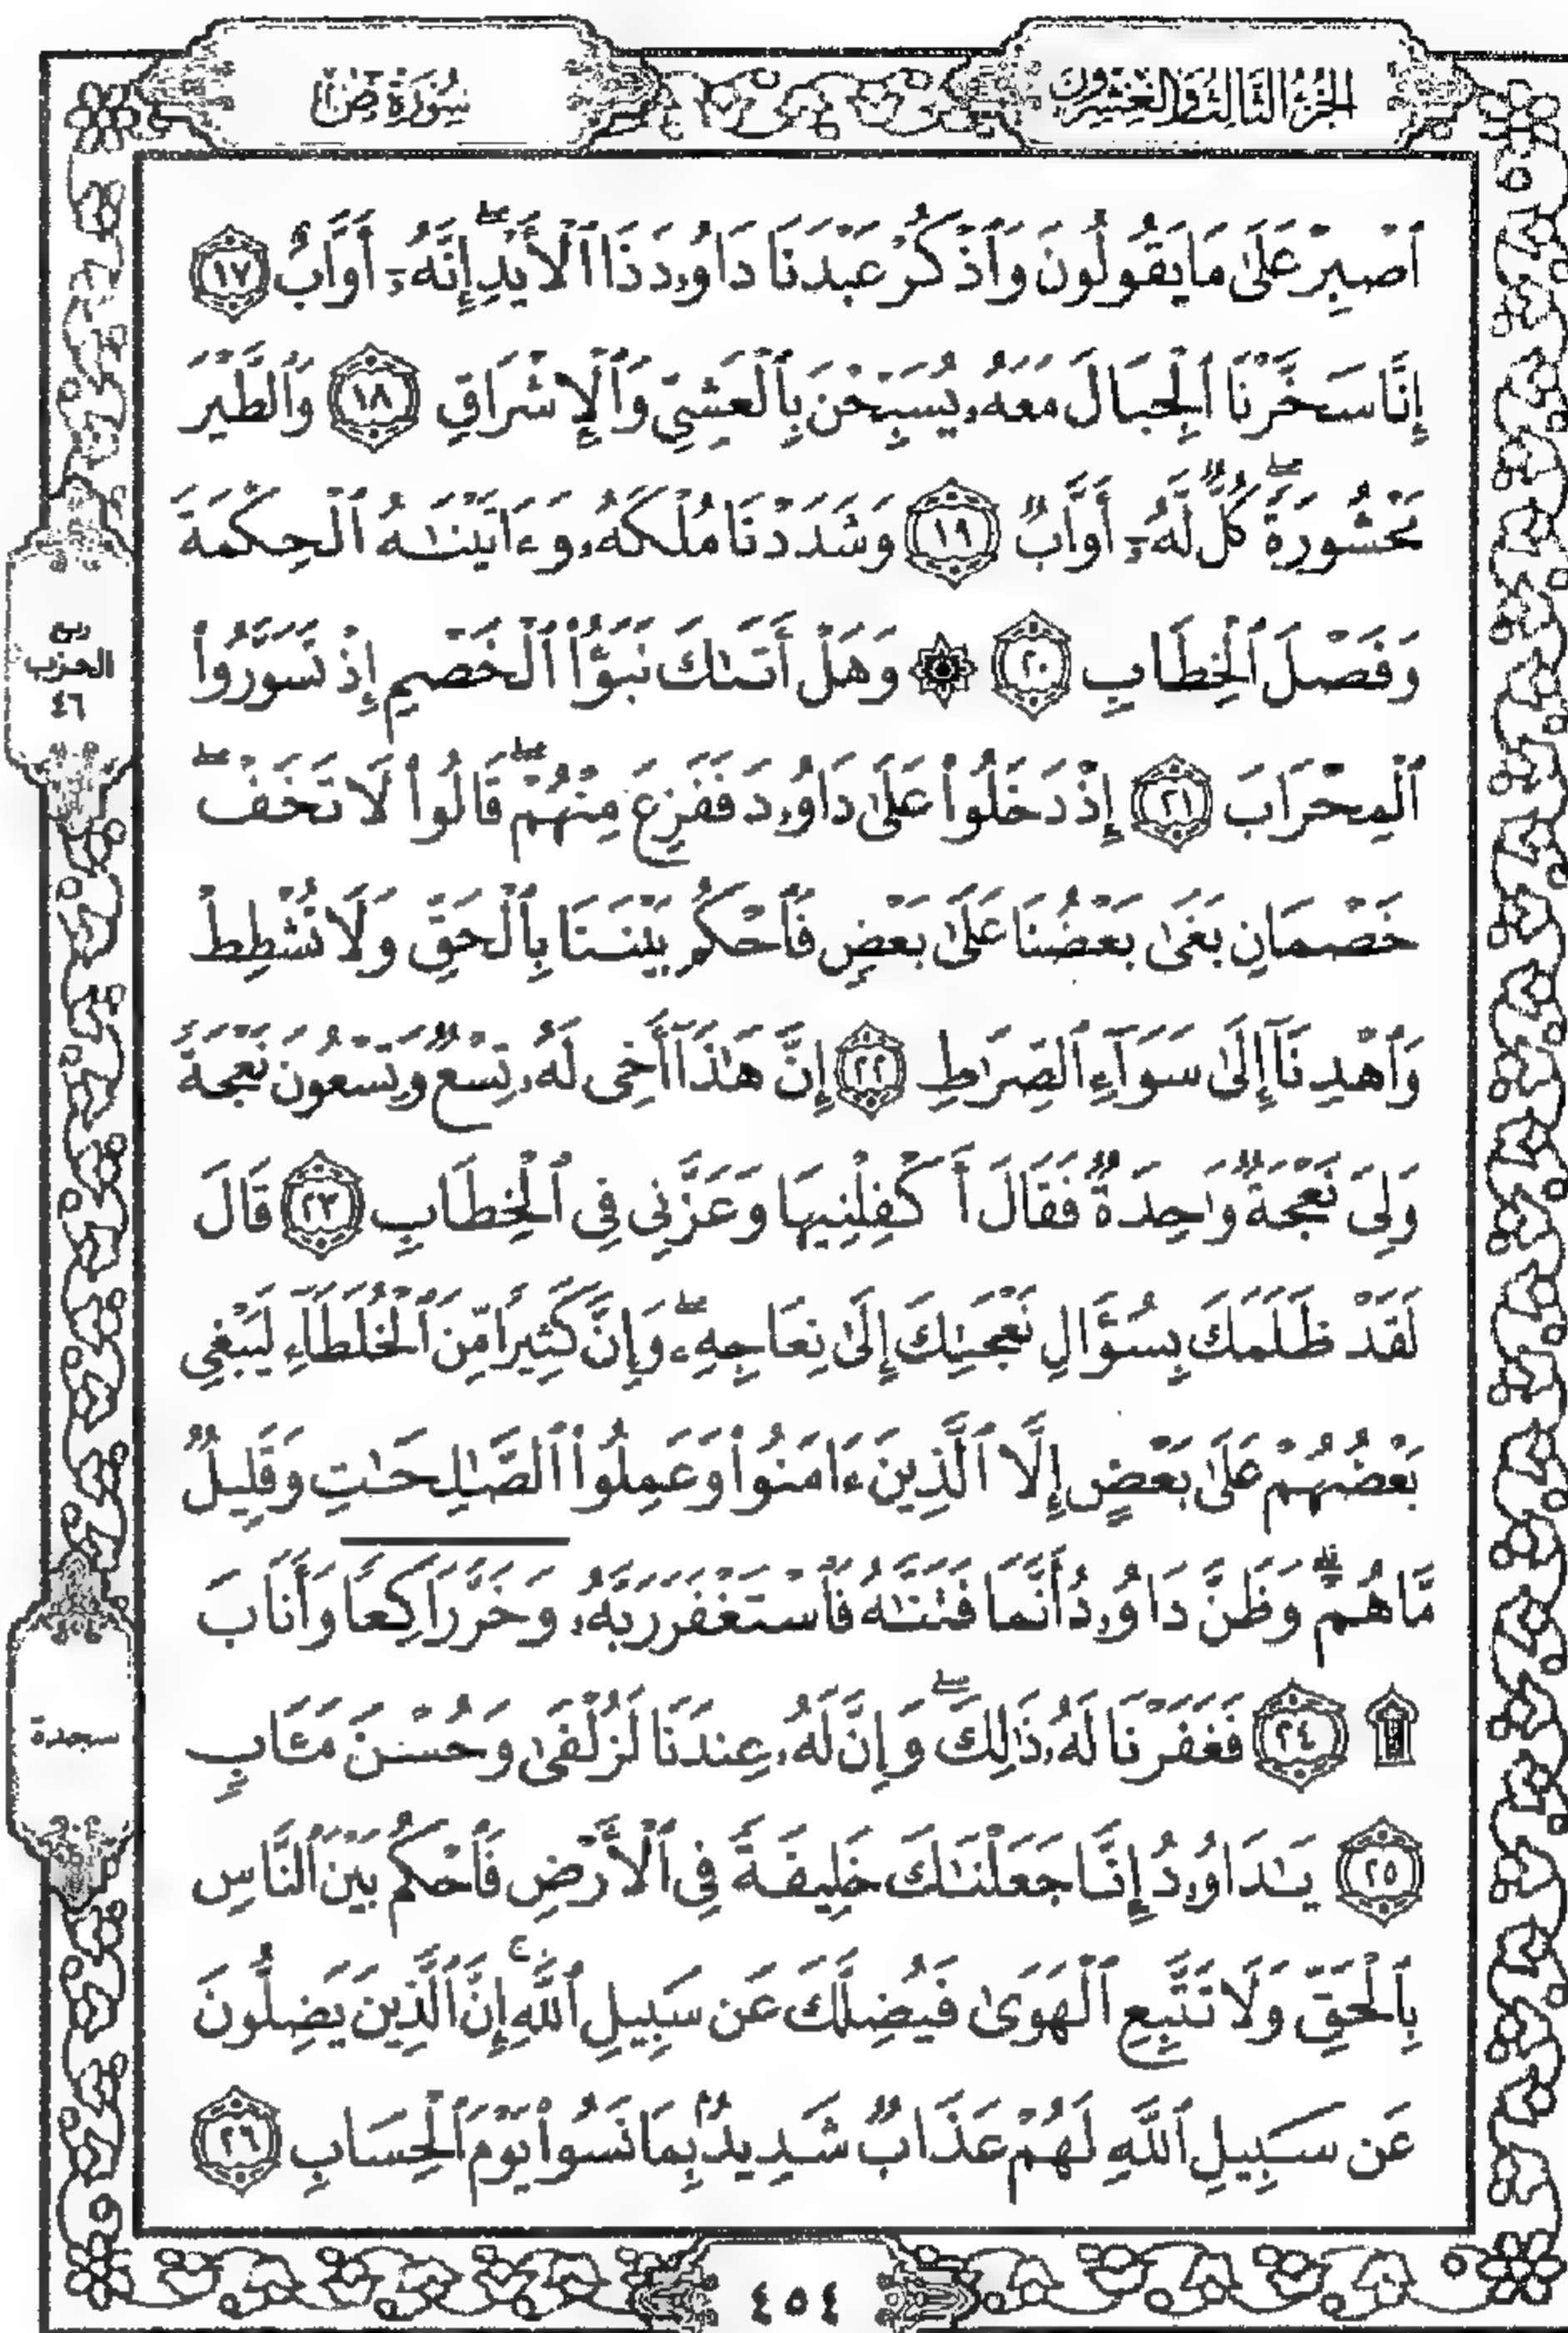 الجزء الثالث والعشرون
سورة ص
ٱصۡبِرۡ عَلَىٰ مَا يَقُولُونَ وَٱذۡكُرۡ عَبۡدَنَا دَاوُۥدَ ذَا ٱلۡأَيۡدِۖ إِنَّهُۥٓ أَوَّابٌ ١٧
إِنَّا سَخَّرۡنَا ٱلۡجِبَالَ مَعَهُۥ يُسَبِّحۡنَ بِٱلۡعَشِيِّ وَٱلۡإِشۡرَاقِ ١٨ وَٱلطَّيۡرَ
مَحۡشُورَةٗۖ كُلّٞ لَّهُۥٓ أَوَّابٞ ١٩ وَشَدَدۡنَا مُلۡكَهُۥ وَءَاتَيۡنَٰهُ ٱلۡحِكۡمَةَ
وَفَصۡلَ ٱلۡخِطَابِ ٢٠ ۞ وَهَلۡ أَتَىٰكَ نَبَؤُاْ ٱلۡخَصۡمِ إِذۡ تَسَوَّرُواْ
ربع
الحزب
٤٦
ٱلۡمِحۡرَابَ ٢١ إِذۡ دَخَلُواْ عَلَىٰ دَاوُۥدَ فَفَزِعَ مِنۡهُمۡۖ قَالُواْ لَا تَخَفۡۖ
خَصۡمَانِ بَغَىٰ بَعۡضُنَا عَلَىٰ بَعۡضٖ فَٱحۡكُم بَيۡنَنَا بِٱلۡحَقِّ وَلَا تُشۡطِطۡ
وَٱهۡدِنَآ إِلَىٰ سَوَآءِ ٱلصِّرَٰطِ ٢٢ إِنَّ هَٰذَآ أَخِي لَهُۥ تِسۡعٞ وَتِسۡعُونَ نَعۡجَةٗ
وَلِيَ نَعۡجَةٞ وَٰحِدَةٞ فَقَالَ أَكۡفِلۡنِيهَا وَعَزَّنِي فِي ٱلۡخِطَابِ ٢٣ قَالَ
لَقَدۡ ظَلَمَكَ بِسُؤَالِ نَعۡجَتِكَ إِلَىٰ نِعَاجِهِۦۖ وَإِنَّ كَثِيرٗا مِّنَ ٱلۡخُلَطَآءِ لَيَبۡغِي
بَعۡضُهُمۡ عَلَىٰ بَعۡضٍ إِلَّا ٱلَّذِينَ ءَامَنُواْ وَعَمِلُواْ ٱلصَّٰلِحَٰتِ وَقَلِيلٞ
مَّا هُمۡۗ وَظَنَّ دَاوُۥدُ أَنَّمَا فَتَنَّٰهُ فَٱسۡتَغۡفَرَ رَبَّهُۥ وَخَرَّ رَاكِعٗا وَأَنَابَ
۩ ٢٤ فَغَفَرۡنَا لَهُۥ ذَٰلِكَۖ وَإِنَّ لَهُۥ عِندَنَا لَزُلۡفَىٰ وَحُسۡنَ مَـَٔابٖ
سجدة
٢٥ يَٰدَاوُۥدُ إِنَّا جَعَلۡنَٰكَ خَلِيفَةٗ فِي ٱلۡأَرۡضِ فَٱحۡكُم بَيۡنَ ٱلنَّاسِ
بِٱلۡحَقِّ وَلَا تَتَّبِعِ ٱلۡهَوَىٰ فَيُضِلَّكَ عَن سَبِيلِ ٱللَّهِۚ إِنَّ ٱلَّذِينَ يَضِلُّونَ
عَن سَبِيلِ ٱللَّهِ لَهُمۡ عَذَابٞ شَدِيدُۢ بِمَا نَسُواْ يَوۡمَ ٱلۡحِسَابِ ٢٦
٤٥٤